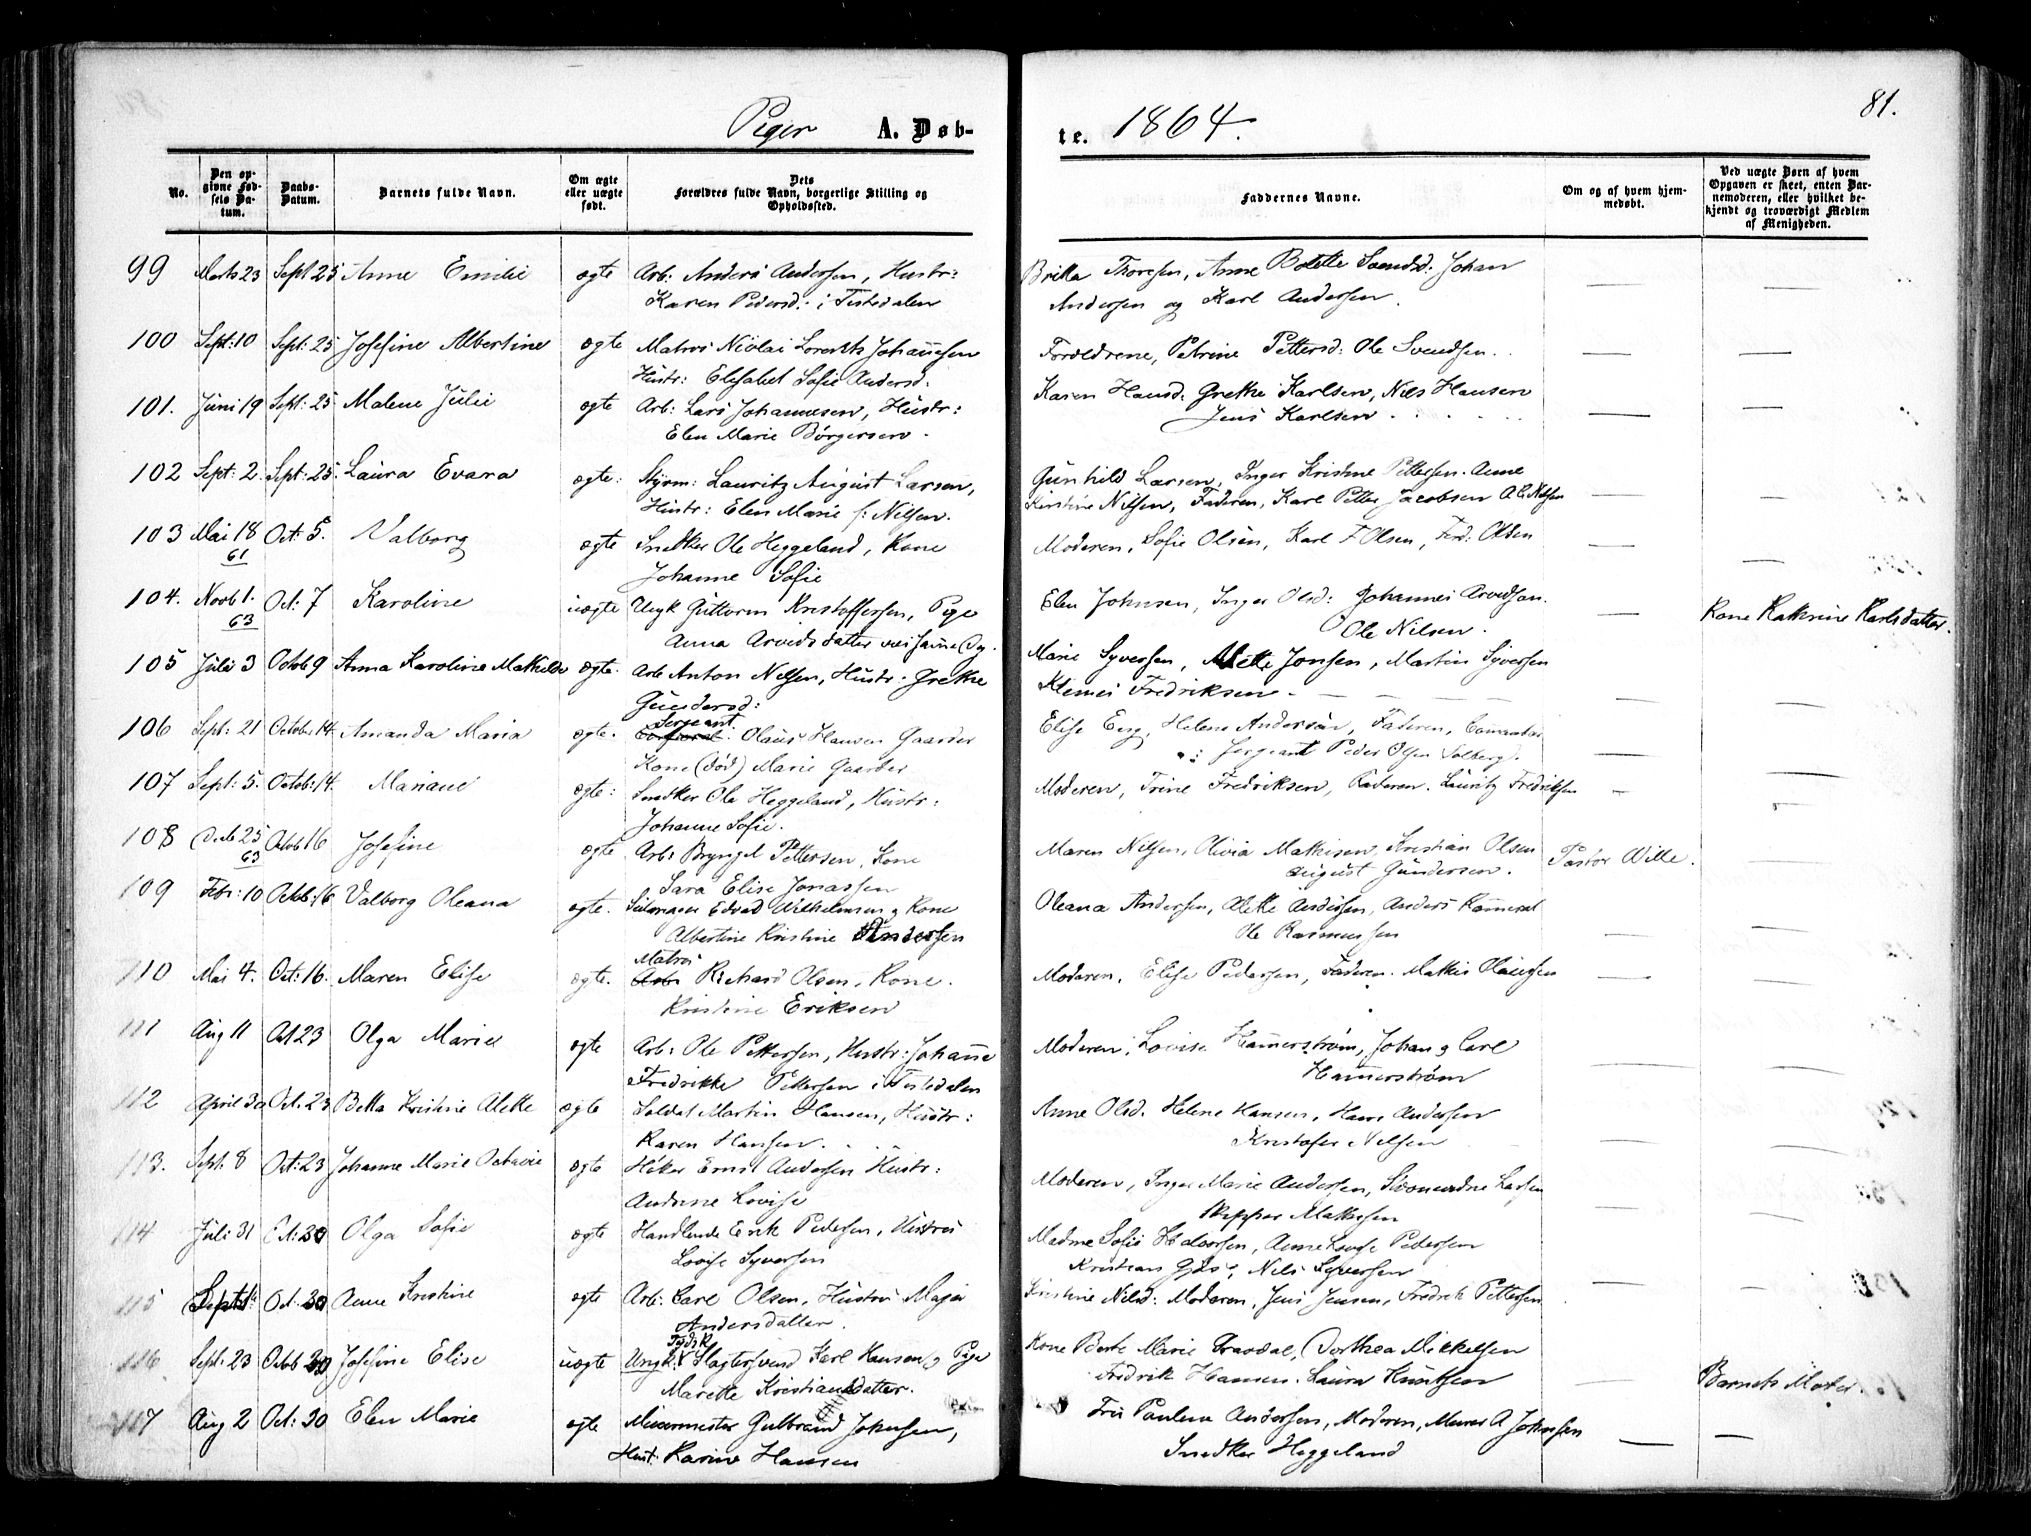 81.
Piger A. Døb- te. 1864.
No. Den opgivne Fødsels Datum. Daabs-Datum. Barnets fulde Navn. Om ægte eller uægte født. Dets Forældres fulde Navn, borgerlige Stilling og Opholdssted. Faddernes Navne. Om og af hvem hjemmedøbt. Ved uægte Børn af hvem Opgaven er skeet, enten Barnemoderen, eller hvilket bekjendt og troværdigt Medlem af Menigheden.
99 Marts 23 Sept 25 Anne Emilie ægte Arb: Anders Andersen, Hustr: Britta Thoresen, Anne Bolette Svendsd: Johan
Karen Pedersd: i Tistedalen Andersen og Karl Andersen.
100 Sept: 10 Sept: 25 Josefine Albertine ægte Matros Nicolai Lorentz Johannesen Forældrene, Petrine Pettersd: Ole Svendsen.
Hustr: Elisabet Sofie Andersd:
101. Juni 19 Sept: 25 Malene Julie ægte Arb: Lars Johannesen, Hustr: Karen Hansd: Grethe Karlsen, Nils Hansen
Elen Marie Børgersen. Jens Karlsen
102 Sept: 2 Sept: 25 Laura Evara ægte: Styrm: Lauritz August Larsen, Gunhild Larsen, Inger Kristine Pettersen. Anne
Hustr: Elen Marie f: Nilsen. Kirstine Nilsen, Faderen, Karl Petter Jacobsen
103 Mai 18 61 Oct: 5. Valborg ægte Snedker Ole Heggeland, Kone Moderen, Sofie Olsen, Karl Olsen, Ferd: Olsen
Johanne Sofie
104. Novb 1. 63 Oct: 7 Karoline uægte Ungk Guttorm Kristoffersen, Pige Elen Johnsen, Inger Olsd: Johannes Arvedsen. Kone Kathrine Karlsdatter.
Anna Arvedsdatter Ole Nilsen.
105 Juli 3 Octob 9 Anna Karoline Mathilde ægte. Arb Anton Nilsen, Hustr: Grethe Marie Syversen, Mette Jonsen, Martin Syversen
Gundersd: Klemet Fredriksen
106 Sept: 21 October 14. Amanda Maria ægte. Sergeant Olaus Hansen Gaarder Elise Eng, Helene Andersen, Faderen,
Kone (død) Marie Gaarder Sergeant Peder Olsen Solberg.
107 Sept: 5. Octob: 14. Mariane ægte: Snedker Ole Heggeland, Hustr: Moderen, Trine Fredriksen, Faderen. Lauritz Fredriksen
Johanne Sofie.
108 Decb 25 63 Octob 16 Josefine ægte Arb: Bryngel Pettersen, Kone Maren Nilsen, Olivia Mathisen, Kristian Olsen Pastor Wille.
Sara Elise Jonassen August Gundersen.
109 Febr: 10 Octob: 16 Valborg Oleana ægte. Edvard Wilhelmsen og Kone Oleana Andersen, Alette Andersen, Anders
Albertine Kristine Andersen Ole Rasmussen
110 Mai 4. Oct: 16. Maren Elise ægte. Matros Richard Olsen, Kone. Moderen, Elise Pedersen, Faderen. Mathis Olausen
Kristine Eriksen
111 Aug 11 Oct 23 Olga Marie ægte Arb: Ole Pettersen, Hustr: Johanne Moderen, Lovise Hammerstrøm, Johan og Carl
Fredrikke Pettersen i Tistedalen Hammerstrøm
112 April 30 Oct. 23 Betta Kristine Alette ægte Soldat Martin Hansen, Hustr: Anne Olsd. Helene Hansen, Hans Andersen
Karen Hansen. Kristofer Nilsen
113. Sept. 8 Oct: 23 Johanne Marie Octavie ægte Høker Ernst Andersen Hustr: Moderen, Inger Marie Andersen, Larsen
Andrine Lovise Skipper Mathisen
114 Juli 31 Oct: 30 Olga Sofie ægte Handlende Erik Pedersen, Hustru Madme Sofie Halvorsen, Anne Lovise Pedersen
Lovise Syversen Kristian Nils Syversen
115 Sept: Oct. 30 Anne Kristine ægte Arb: Carl Olsen, Hustru Maja Kristine Nilsd: Moderen, Jens Jensen, Fredrik Pettersen
Andersdatter.
116 Sept: 23 Octb 30 Josefine Elise uægte Ungk: Tydsk Slagtersvend Karl Hansen, og Pige Kone Berte Marie Dorthea Mikkelsen Barnets Moder
Marette Kristiansdatter. Fredrik Hansen. Laura Knutsen
117 Aug 2 Oct: 30 Elen Marie ægte Murermester Gulbrand Johnsen, Fru Pauline Andersen, Moderen, Murer A Johnsen
Hust. Karine Hansen Snedker Heggeland